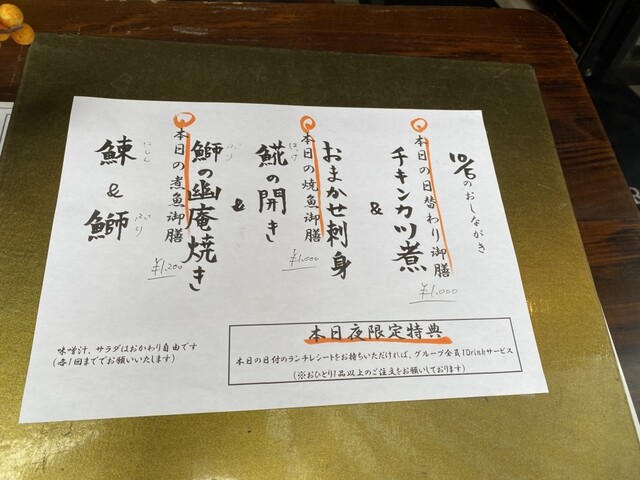 のおしながき
本日の日替わり御膳
チキンカツ煮
&
おまかせ刺身
¥1,000
本日の焼魚御膳
ほっけ
𩸽の開き
&
ぶり
鰤の幽庵焼き
¥1,000
本日の煮魚御膳
にしん
鰊
&
ぶり
鰤
¥1,200
本日夜限定特典
本日の日付のランチレシートをお持ちいただければ、グループ全員1Drinkサービス
(※おひとり1品以上のご注文をお願いしております)
味噌汁、サラダはおかわり自由です
(各1回まででお願いいたします)